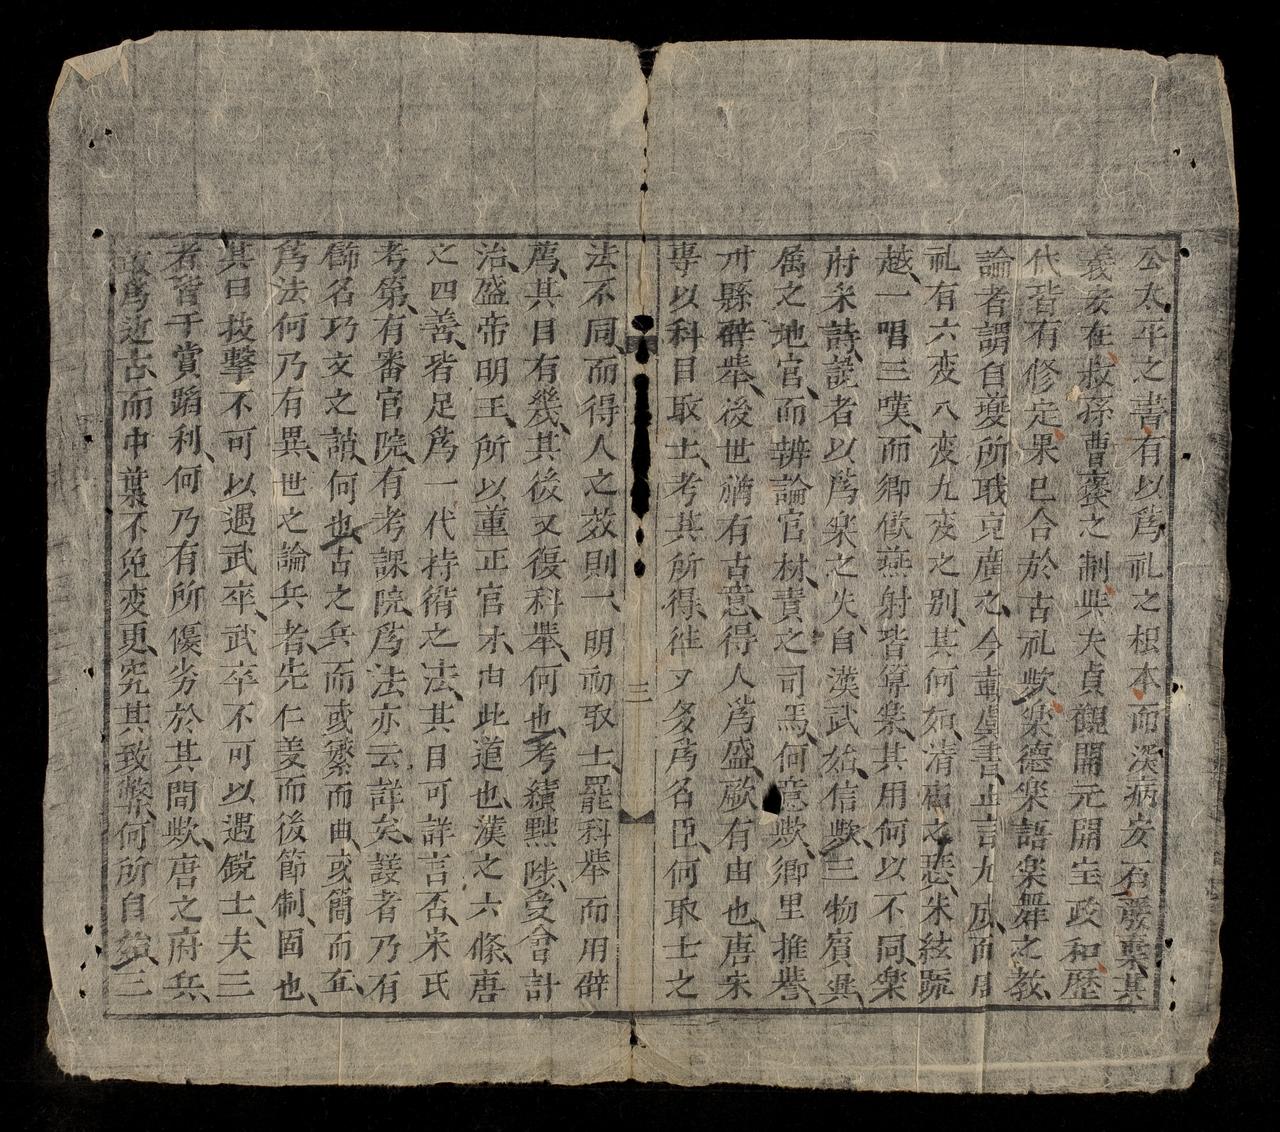 公太平之書有以為礼之根本而深病安石廢棄其
義安在叔孫曹襃之制典夫貞觀開元開宝政和歷
代皆有修定果已合於古礼歟楽德楽語楽舞之教
論者謂自夔所職克廣之今虞書止言九成而周
礼有六变八变九变之别其何如清庙之瑟朱絃䟽
越一唱三嘆而鄉飲燕射皆算楽其用何以不同楽
府采詩説者以為楽之失自漢武始信歟三物賓興
属之地官而辨論官材責之司馬何意歟鄉里推譽
州縣辟舉後世猶有古意得人為盛歟有由也唐宋
專以科目取士考其所得往々多為名臣何取士之
三
法不同而得人之效則一明初取士罷科举而用辟
薦其目有幾其後又復科举何也考績黜陟受會計
治盛帝明王所以董正官才由此道也漢之六條唐
之四善皆足為一代持循之法其目可詳言否宋氏
考第有審官院有考課院為法亦云詳矣議者乃有
飾名巧文之譏何也古之兵而或繁而曲或簡而直
為法何乃有異世之論兵者先仁義而後節制固也
其曰技擊不可以遇武卒武卒不可以遇鋭士夫三
者皆干賞蹈利何乃有所優劣於其間歟唐之府兵
最為近古而中葉不免变更究其致弊何所自始三